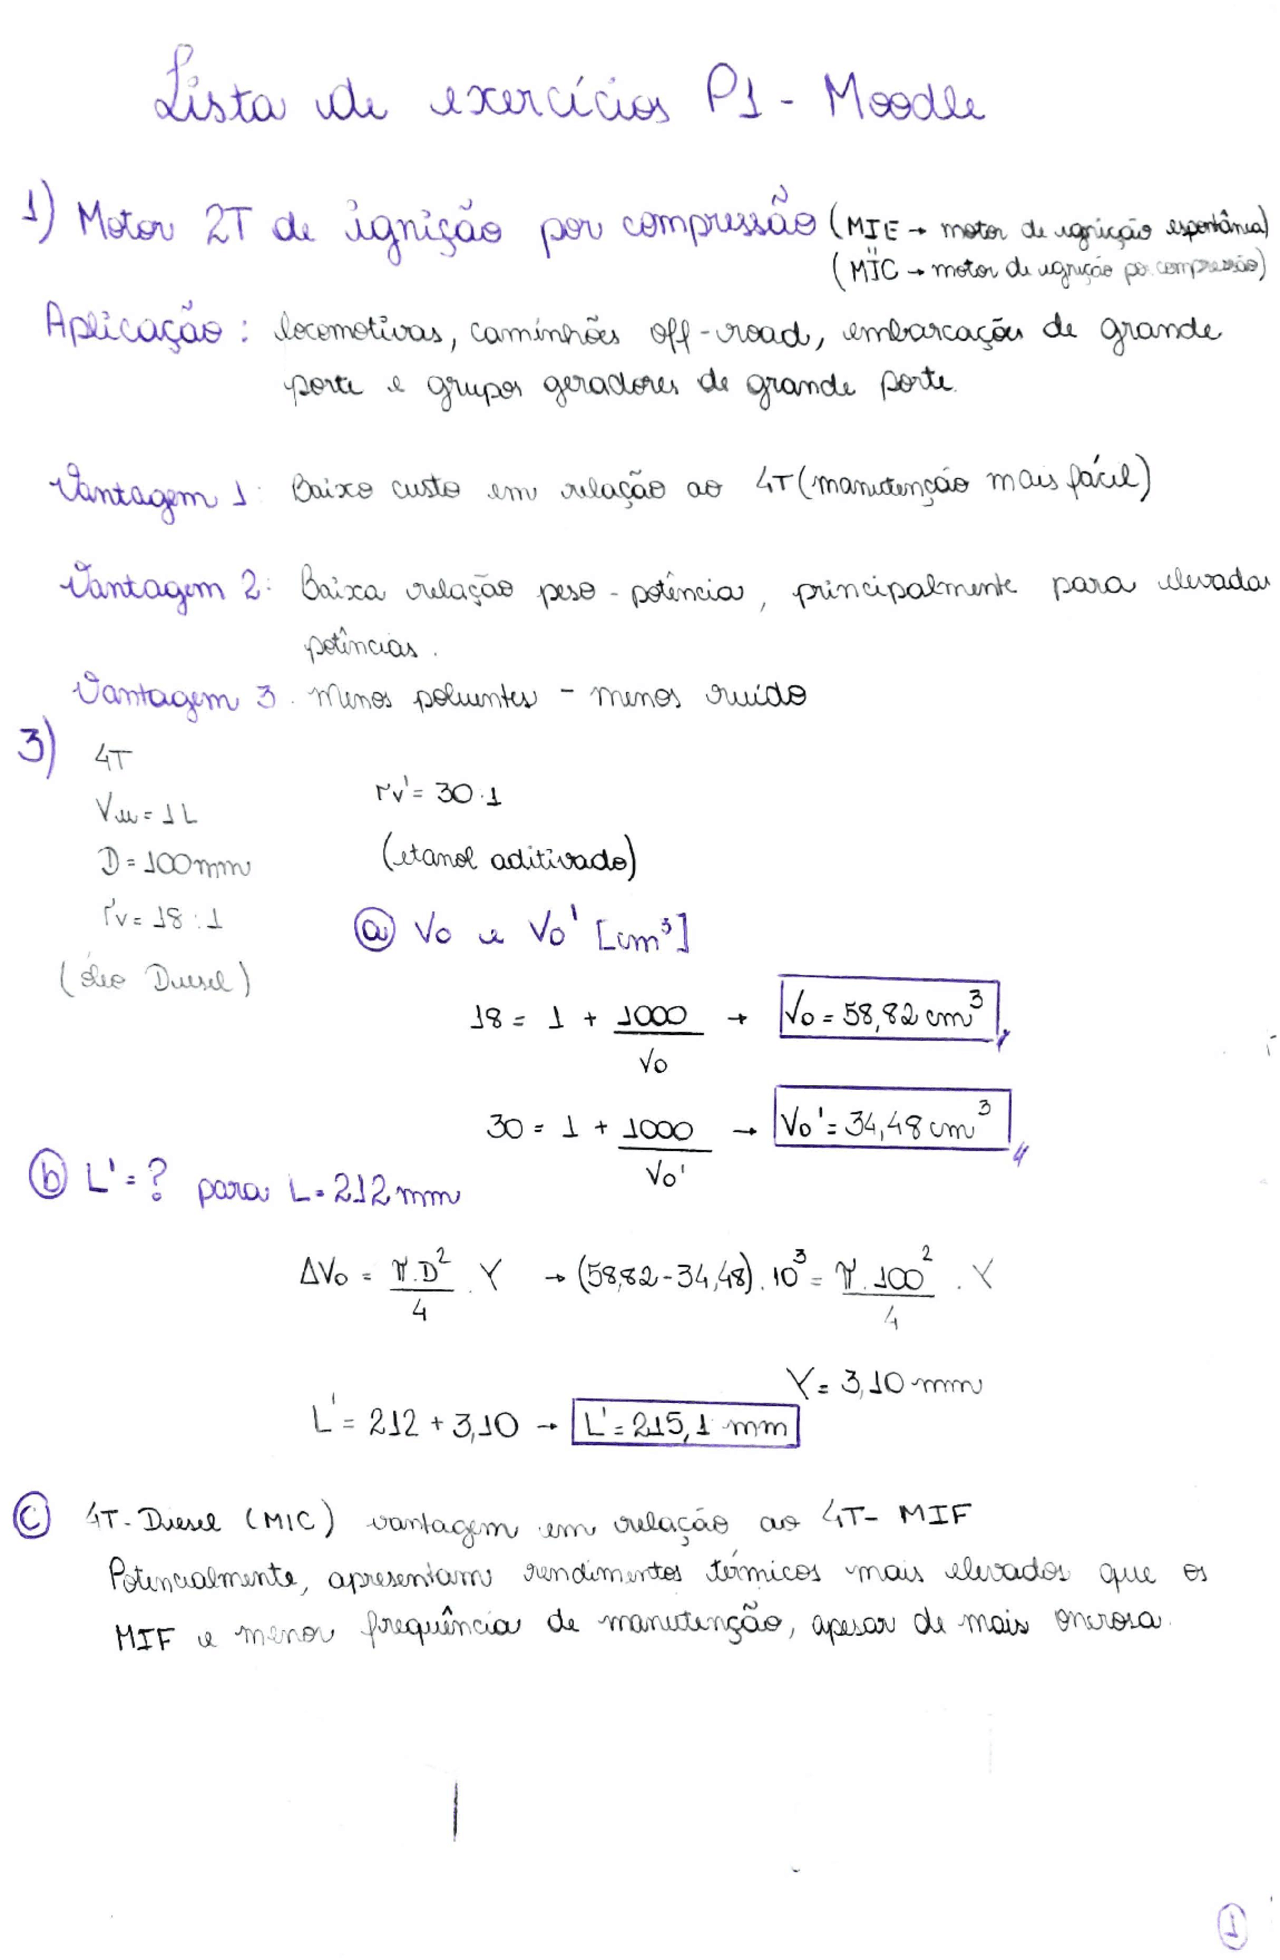 Lista de exercícios P1 - Moodle
1) Motor 2T de ignição por compressão (MIE → motor de ignição espontânea)
(MIC → motor de ignição por compressão)
Aplicação: locomotivas, caminhões off-road, embarcações de grande
porte e grupos geradores de grande porte.
Vantagem 1: Baixo custo em relação ao 4T (manutenção mais fácil)
Vantagem 2: Baixa relação peso-potência, principalmente para elevadas
potências.
Vantagem 3: Menos poluentes - menos ruído
3) 4T
Vu = 1L
D = 100mm
rv = 18:1
(óleo Diesel)
rv' = 30:1
(etanol aditivado)
a) Vo e Vo' [cm³]
18 = 1 + 1000/Vo → Vo = 58,82 cm³
30 = 1 + 1000/Vo' → Vo' = 34,48 cm³
b) L' = ? para L = 212 mm
ΔVo = π.D²/4 . Y → (58,82 - 34,48).10³ = π.100²/4 . Y
Y = 3,10 mm
L' = 212 + 3,10 → L' = 215,1 mm
c) 4T-Diesel (MIC) vantagem em relação ao 4T- MIF
Potencialmente, apresentam rendimentos térmicos mais elevados que os
MIF e menor frequência de manutenção, apesar de mais onerosa.
1